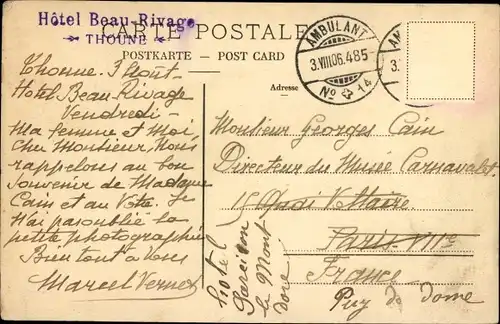 Hôtel Beau-Rivage
THOUNE
CARTE POSTALE
POSTKARTE — POST CARD
Adresse
AMBULANT
3.VIII06.485
No 14
AN
3.
Thonne. 3 Aout-
Hotel Beau-Rivage
Vendredi-
Ma femme et Moi,
Cher Monsieur, Nous
rappelons au bon
Souvenir de Madame
Cain et au Vôtre. Je
n'ai pas oublié la
petite photographie
Bien tout à vous
Marcel Vernes
Monsieur Georges Cain
Directeur du Musée Carnavalet.
15 Quai Voltaire
Paris VIIe
France
Puy de Dome
Hotel
Sarciron
le Mont
Dore